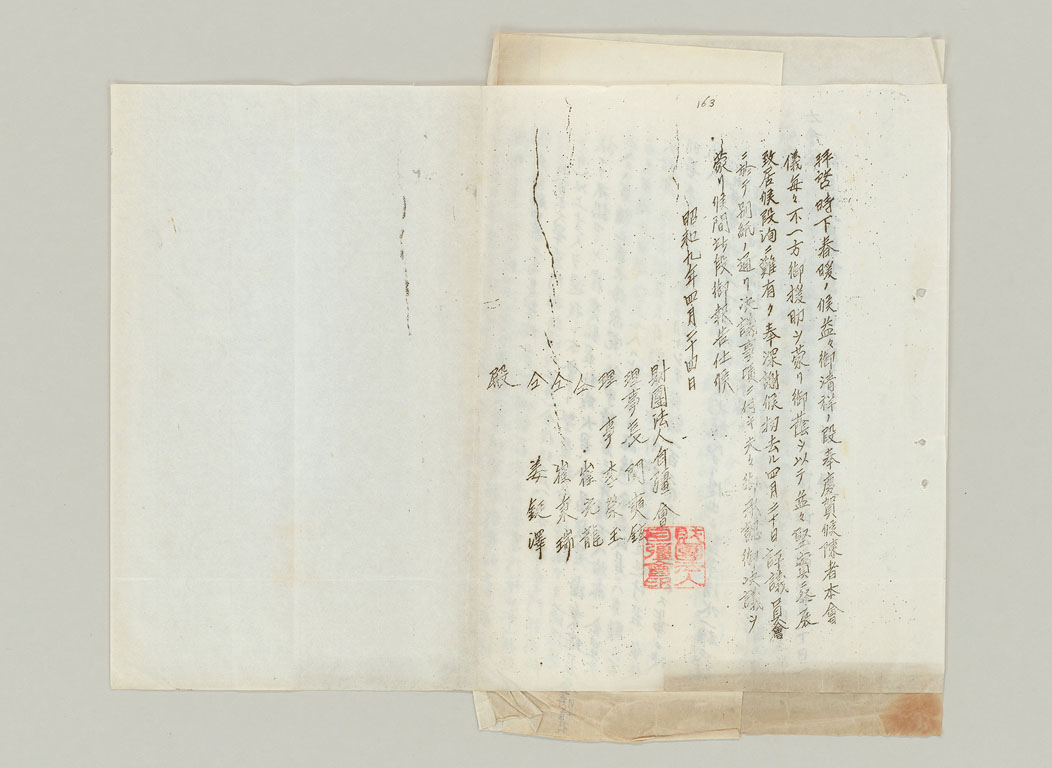 163
拝啓時下春暖ノ候益々御清祥ノ段奉慶賀候陳者本會
儀毎々不一方御援助ヲ蒙リ御蔭ヲ以テ益々堅實ニ發展
致居候段洵ニ難有ク奉深謝候扨去ル四月二十日評議員會
ニ於テ別紙ノ通リ決議事項ニ付キ夫々御承認御決議ヲ
蒙リ候間此段御報告仕候
昭和九年四月二十四日
財團法人自彊會
理事長 閔
理事 李榮玉
仝 崔元龍
仝 崔秉瑞
仝 姜鋌澤
殿
財團法人自彊會印